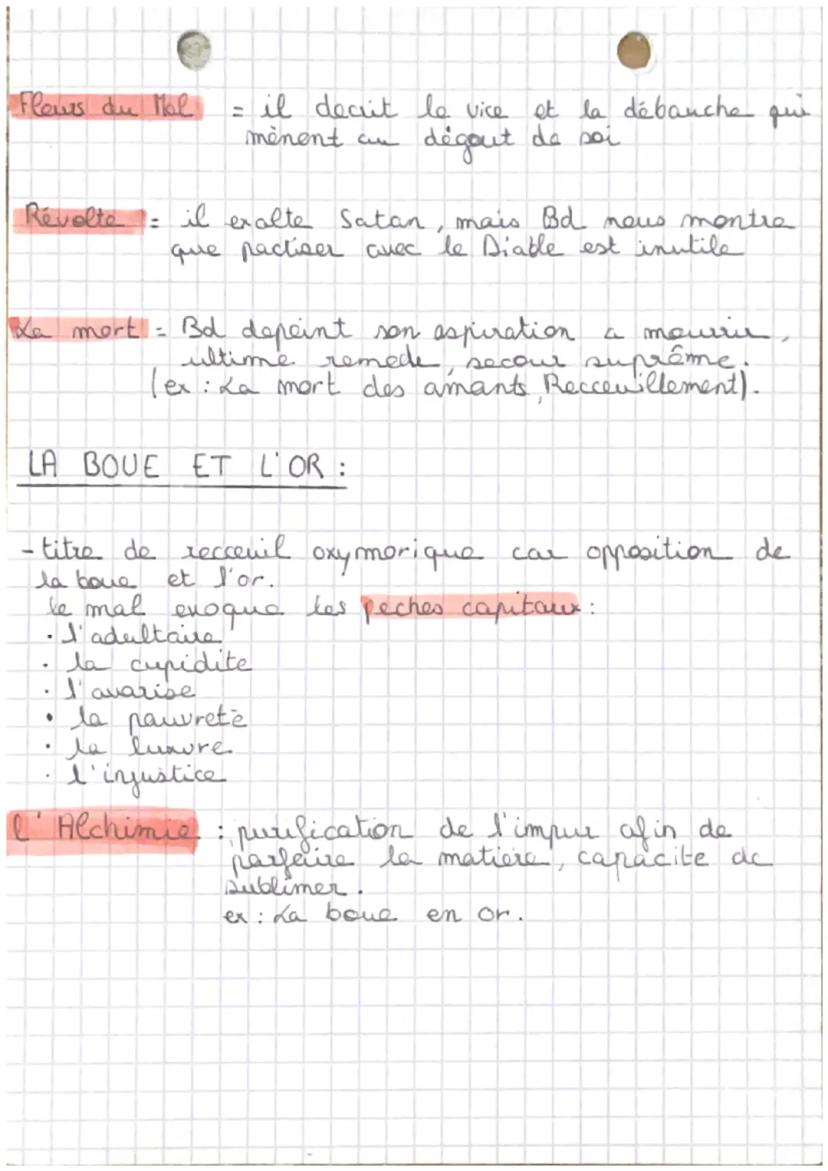 Fleurs du Mal = il decrit le vice et la débauche qui
mènent au dégout de soi
Révolte = il exalte Satan, mais Bd nous montre
que pactiser avec le Diable est inutile
La mort = Bd depeint son aspiration a mourir,
ultime remede, secour suprême.
(ex : La mort des amants, Recceuillement).
LA BOUE ET L'OR :
- titre de recceuil oxymorique car opposition de
la boue et l'or.
le mal evoque les peches capitaux :
• l'adultaire
• la cupidite
• l'avarise
• la pauvreté
• la luxure
• l'injustice
l'Alchimie : purification de l'impur afin de
parfaire la matiere, capacite de
sublimer.
ex : La boue en or.